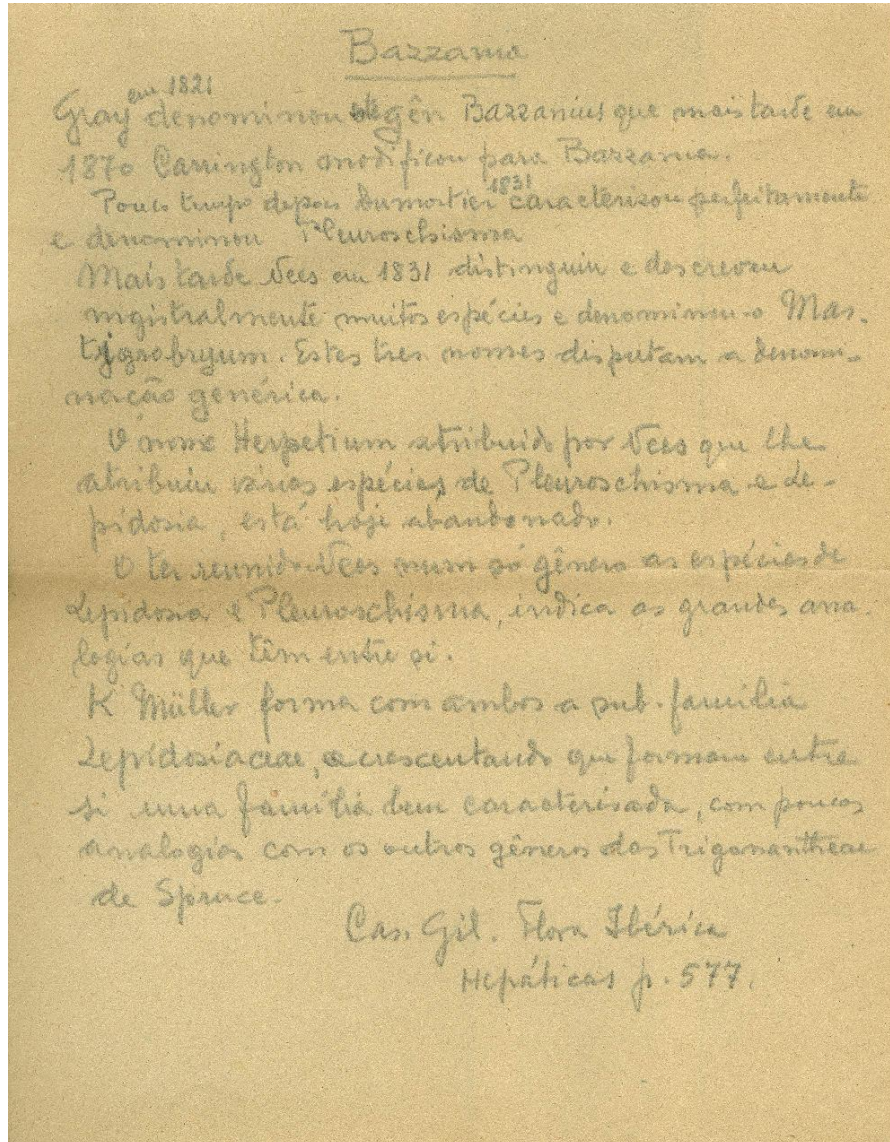 Bazzania
em 1821
Gray denominou este gên Bazzanius que mais tarde em
1870 Carrington modificou para Bazzania.
Pouco tempo depois Dumortier 1831 caracterizou perfeitamente
e denominou Pleuroschisma
Mais tarde Nees em 1831 distinguiu e descreveu
magistralmente muitos espécies e denominou-o Mas-
tigrobryum. Estes tres nomes disputam a denomi-
nação genérica.
O nome Herpetium atribuido por Nees que lhe
atribuiu várias espécies de Pleuroschisma e Le-
pidosia, está hoje abandonado.
O ter reunido Nees num só gênero as espécies de
Lepidosia e Pleuroschisma, indica as grandes ana-
logias que têm entre si.
K Müller forma com ambos a sub-familia
Lepidosiaceae, acrescentando que formam entre
si uma família bem caracterisada, com poucas
analogias com os outros gêneros das Trigonantheae
de Spruce.
Cas. Gil. Flora Ibérica
Hepáticas p. 577.